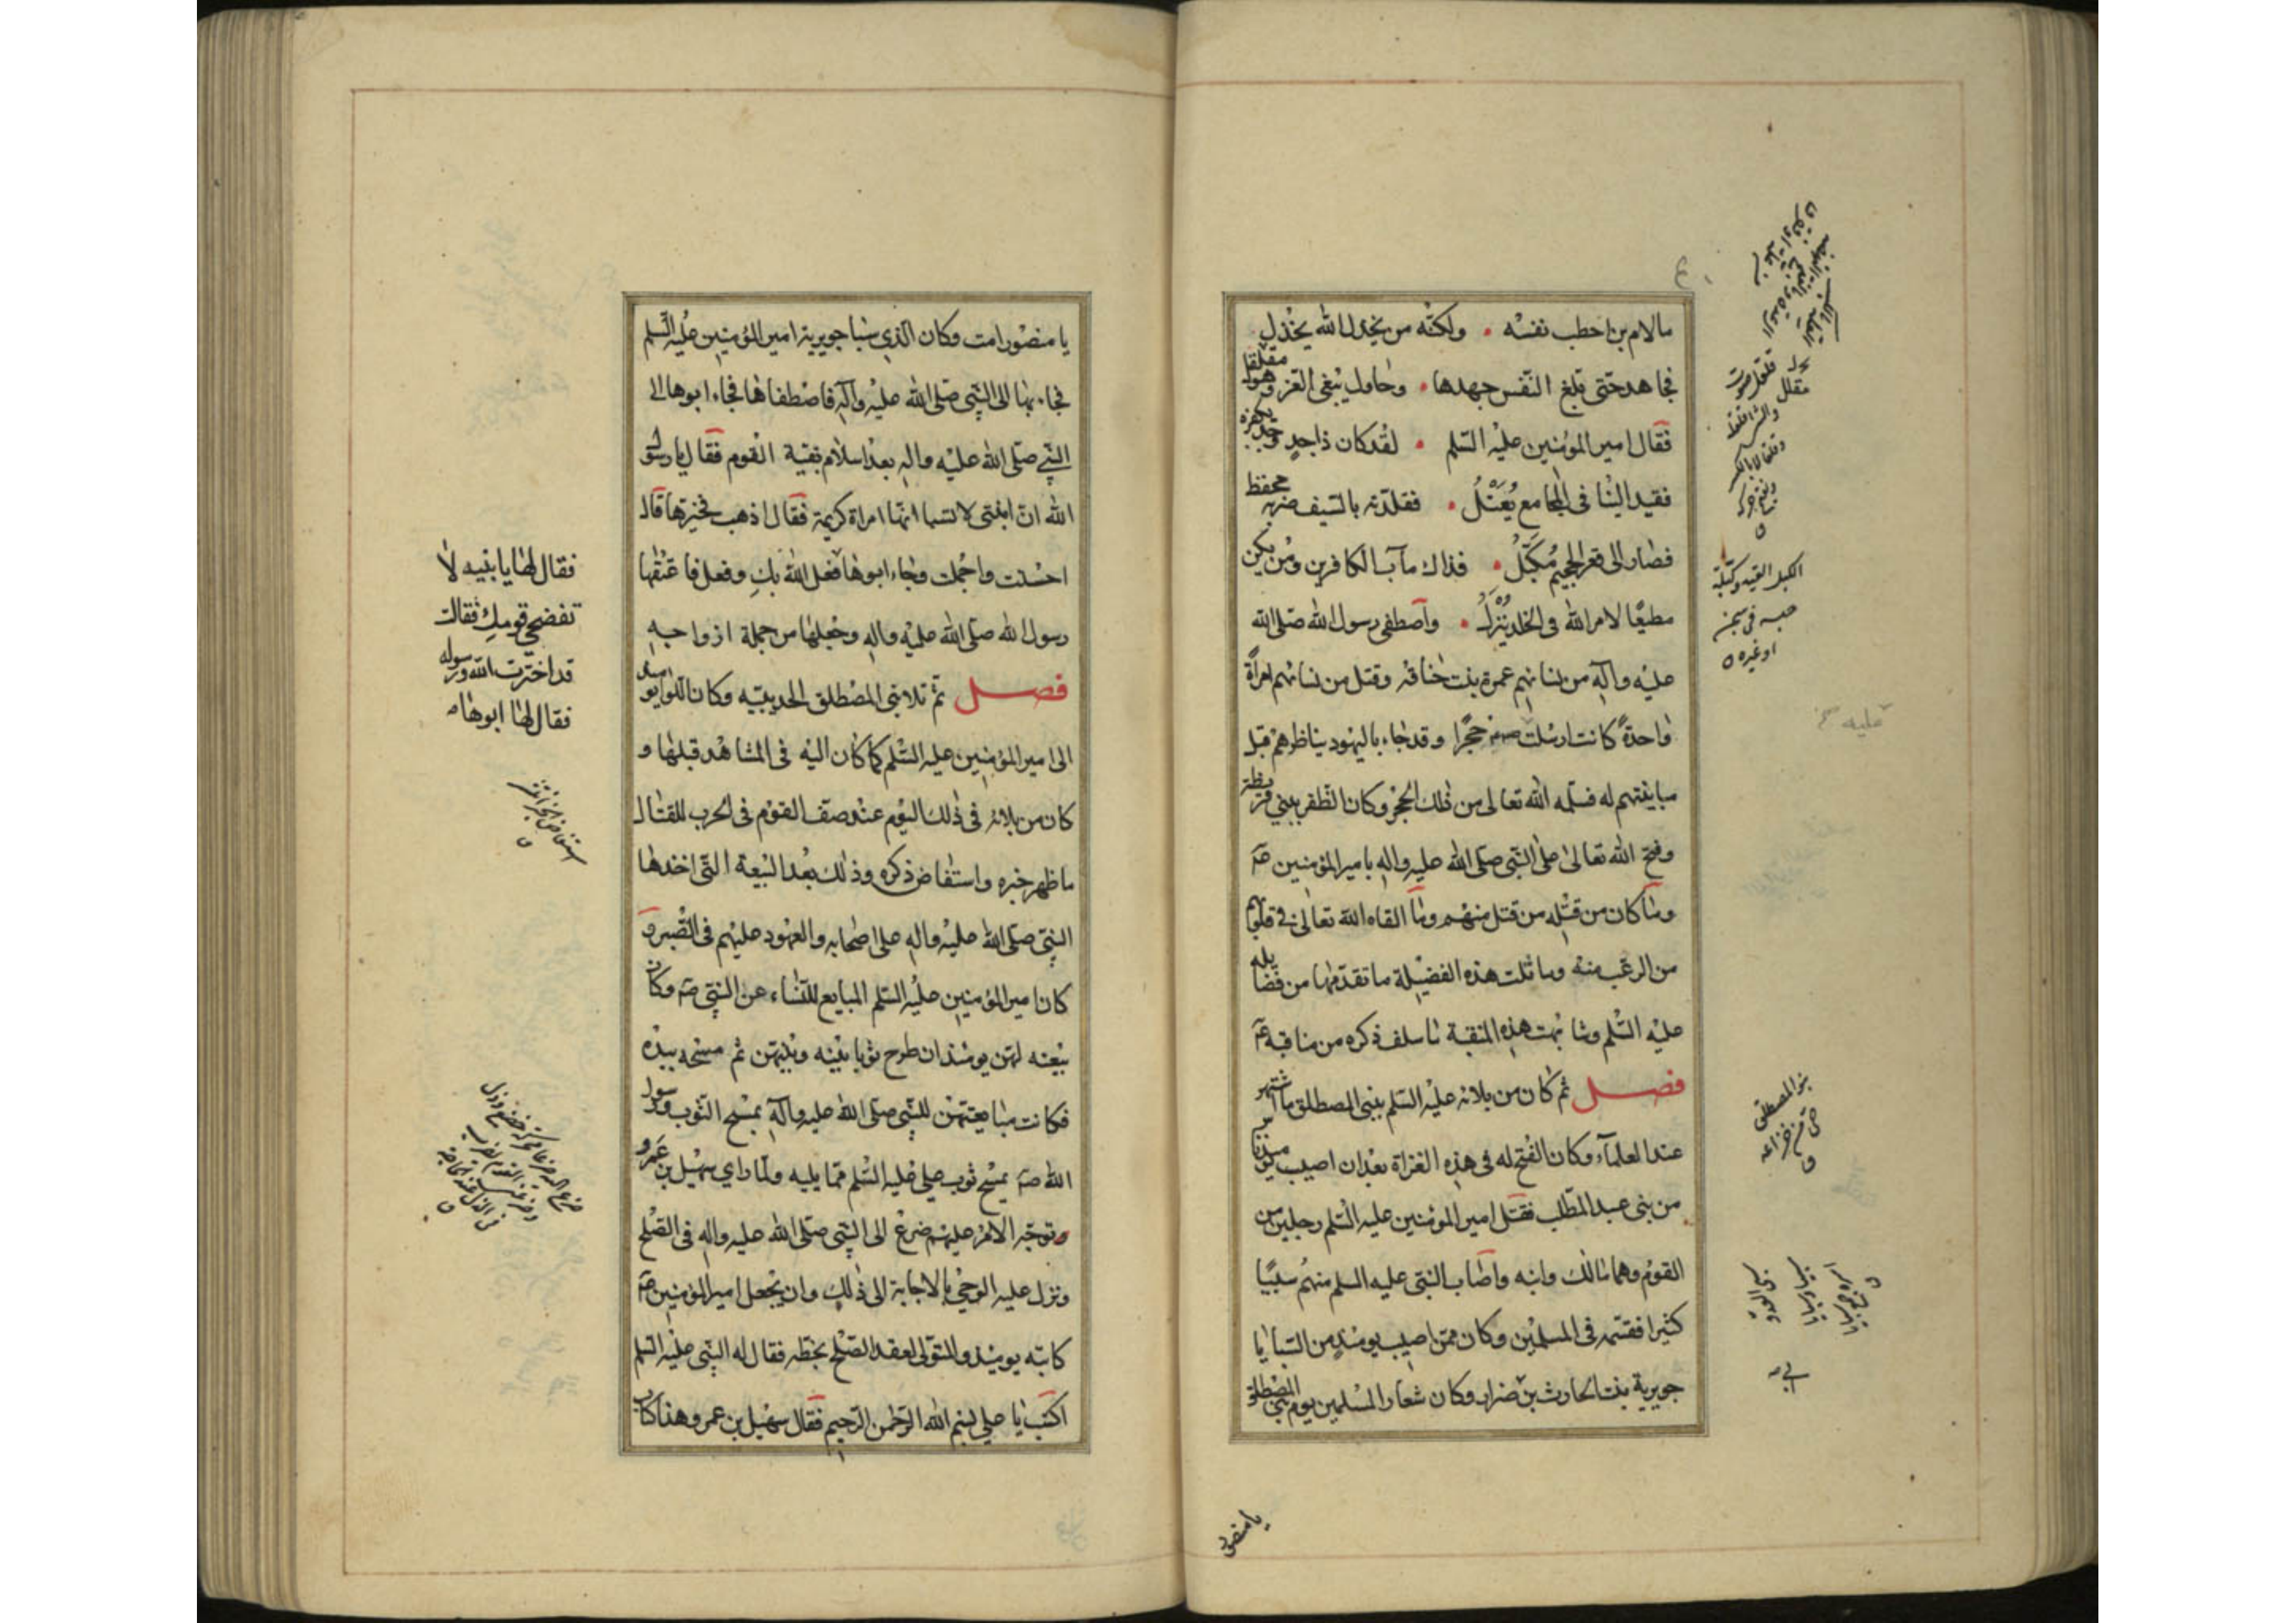 ما لام بن اخطب نفسه • ولكنه من يخذل الله يخذل
فجاهد حتى بلغ النفس جهدها • وحاول يبغى العز كل مقلقل
فقال امير المؤمنين عليه السلم • لقد كان ذا جد وجد بكفره
فقيد الينا فى المجامع يعتل • فقلدته بالسيف ضربة محفظ
فصار الى قعر الجحيم مكبل • فذاك مآب الكافرين ومن يكن
مطيعًا لامر الله فى الخلد ينزل • واصطفى رسول الله صلى الله
عليه وآله من نسائهم عمرة بنت خناقه وقتل من نسائهم امراة
واحدةً كانت ارسلت عليه حجرا وقد جاء باليهود يناظرهم قبل
مباينتهم له فسلمه الله تعالى من ذلك الحجر وكان الظفر ببني قريظة
وفتح الله تعالى على النبى صلى الله عليه واله بامير المؤمنين عم
وما كان من قتله من قتل منهم وما القاه الله تعالى فى قلوبهم
من الرعب منه وماثلت هذه الفضيلة ما تقدمها من فضايله
عليه السلم وشابهت هذه المنقبة ما سلف ذكره من مناقبه عم
فصل ثم كان من بلائه عليه السلم ببنى المصطلق ما اشتهر
عند العلماء وكان الفتح له فى هذه الغزاة بعد ان اصيب يومئذ ناس
من بنى عبد المطلب فقتل امير المؤمنين عليه السلم رجلين من
القوم وهما مالك وابنه واصاب النبى عليه السلم منهم سبيًا
كثيرا فقسمه فى المسلمين وكان ممن اصيب يومئذٍ من السبايا
جويرية بنت الحارث بن ضرار وكان شعار المسلمين يوم بنى المصطلق
الكبل القيد وكبله
حبسه فى سجن
او غيره
عليه
بنو المصطلق
حى من خزاعه
يا منصور
يا منصور امت وكان الذى سبا جويرية امير المؤمنين عليه السلم
فجاء بها الى النبى صلى الله عليه وآله فاصطفاها فجاء ابوها الى
النبي صلى الله عليه واله بعد اسلام بقية القوم فقال يا رسول
الله ان ابنتى لا تسبا انها امراة كريمة فقال اذهب فخيرها قال
احسنت واجملت وجاء ابوها فعل الله بكِ وفعل فاعتقها
رسول الله صلى الله عليه واله وجعلها من جملة ازواجه
فصل ثم تلا بنى المصطلق الحديبيه وكان اللواء يومئذ
الى امير المؤمنين عليه السلم كما كان اليه فى المشاهد قبلها و
كان من بلائه فى ذلك اليوم عند صف القوم فى الحرب للقتال
ما ظهر خبره واستفاض ذكره وذلك بعد البيعة التى اخذها
النبى صلى الله عليه واله على اصحابه والعهود عليهم فى الصبر و
كان امير المؤمنين عليه السلم المبايع للنساء عن النبى صم وكان
بيعته لهن يومئذ ان طرح ثوبا بينه وبينهن ثم مسحه بيده
فكانت مبايعتهن للنبى صلى الله عليه وآله بمسح الثوب ورسول
الله صم يمسح ثوب على عليه السلم مما يليه ولما راى سهيل بن عمرو
توجه الامر عليهم ضرع الى النبى صلى الله عليه واله فى الصلح
ونزل عليه الوحى بالاجابة الى ذلك وان يجعل امير المؤمنين عم
كاتبه يومئذ والمتولى لعقد الصلح بخطه فقال له النبى عليه السلم
اكتب يا على بسم الله الرحمن الرحيم فقال سهيل بن عمرو هذا كتاب
فقال لها يا بنيه لا
تفضحى قومك فقالت
قد اخترت الله ورسوله
فقال لها ابوها